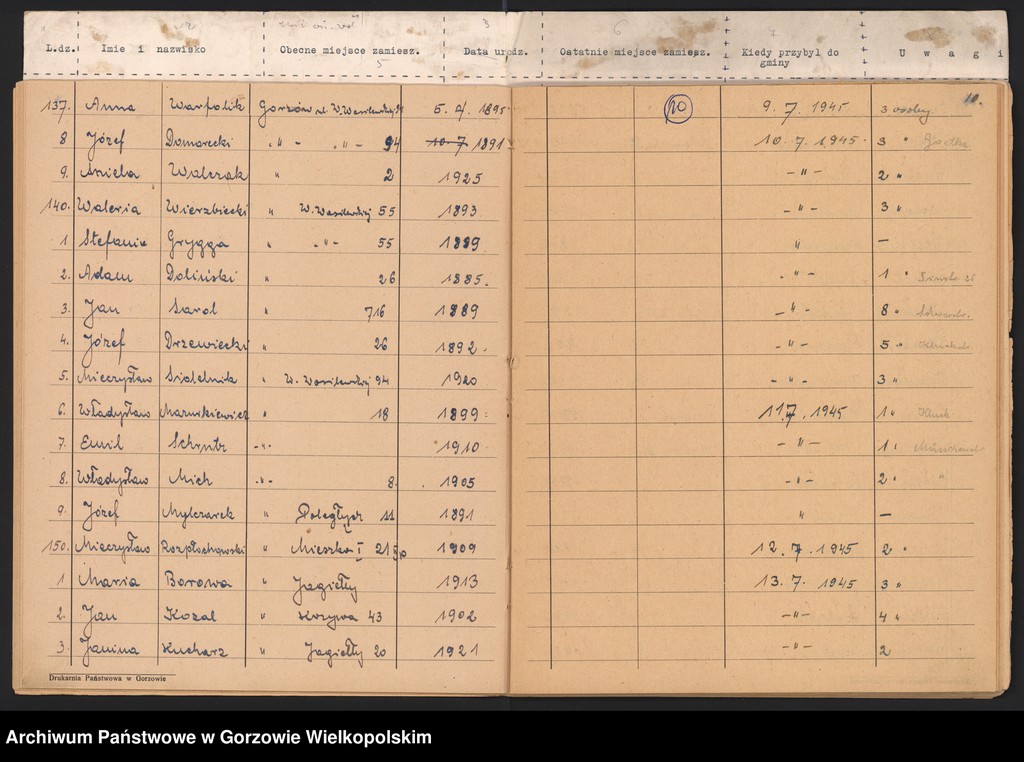 L.dz. Imie i nazwisko Obecne miejsce zamiesz. Data urodz. Ostatnie miejsce zamiesz. Kiedy przybył do gminy U w a g i
10.
137. Anna Warfolik Gorzów ul. W. Wasilewskiej 5. 7. 1895 20 9. 7. 1945 3 osoby
8 Józef Domarecki " - " - 94 10. 7 1891 10. 7. 1945. 3 "
9. Aniela Walczak " 2 1925 - " - 2 "
140. Waleria Wierzbiecki " W. Wasilewskiej 55 1893 - " - 3 "
1 Stefania Grygga " - " - 55 1889 " -
2. Adam Doliński " 26 1885. - " - 1 "
3. Jan Sarol " 716 1889 - " - 8 "
4. Józef Drzewiecki " 26 1892. - " - 5 "
5. Mieczysław Siodelnik " W. Wasilewskiej 94 1920 - " - 3 "
6. Władysław " 18 1899 11.7. 1945 1 "
7. Emil - " - 1910 - " - 1 "
8. Władysław Mich - " - 8. 1905 - " - 2 "
9. Józef Mylczarek " Poległych 11 1891 " -
150. Mieczysław Rozpłochowski " Mieszka I 21 1909 12. 7. 1945 2 "
1 Maria Borowa " Jagiełły 1913 13. 7. 1945 3 "
2. Jan Kozal " Krzywa 43 1902 - " - 4 "
3. Janina Kucharz " Jagiełły 20 1921 - " - 2
Drukarnia Państwowa w Gorzowie
Archiwum Państwowe w Gorzowie Wielkopolskim